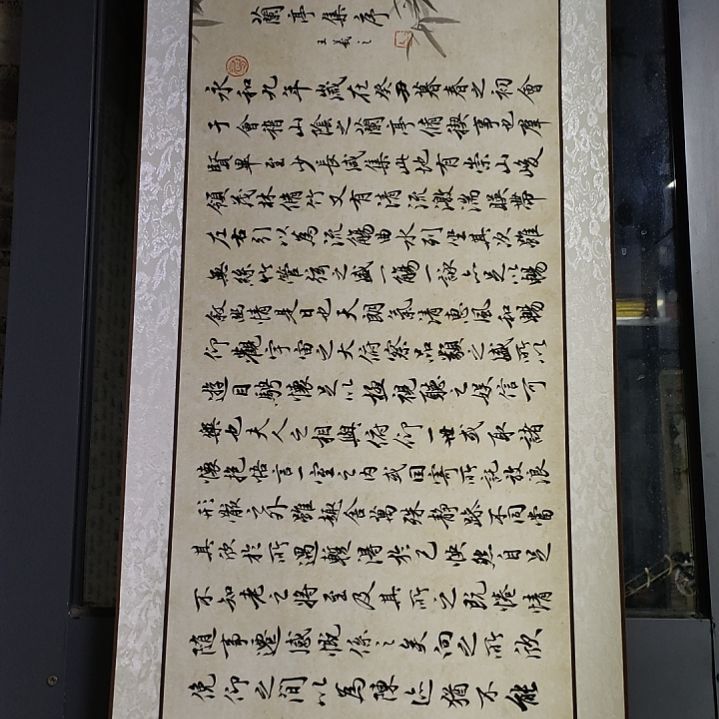 蘭亭集序
王羲之
永和九年歲在癸丑暮春之初會
于會稽山陰之蘭亭脩禊事也羣
賢畢至少長咸集此地有崇山峻
領茂林脩竹又有清流激湍暎帶
左右引以為流觴曲水列坐其次雖
無絲竹管弦之盛一觴一詠亦足以暢
敘幽情是日也天朗氣清惠風和暢
仰觀宇宙之大俯察品類之盛所以
遊目騁懷足以極視聽之娛信可
樂也夫人之相與俯仰一世或取諸
懷抱悟言一室之內或因寄所託放浪
形骸之外雖趣舍萬殊靜躁不同當
其欣於所遇蹔得於己怏然自足
不知老之將至及其所之既惓情
隨事遷感慨係之矣向之所欣
俛仰之間以為陳迹猶不能